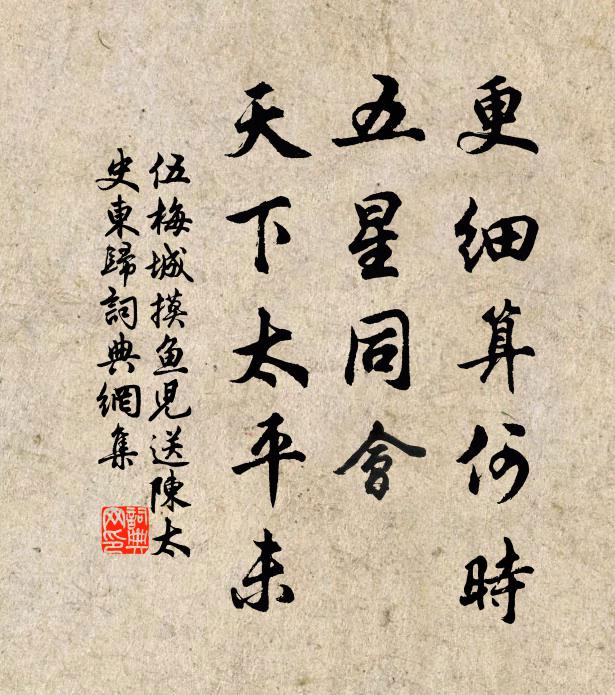 更細算何時
五星同會
天下太平未
伍梅城摸魚兒送陳太
史東歸詞典網集
詞典网印